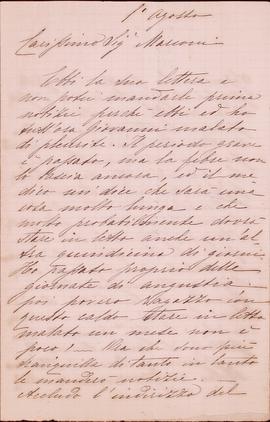 1° Agosto
Carissimo Sig Marconi
Ebbi la sua lettera e
non potei mandarle prima
notizie perchè ebbi ed ho
tutt'ora Giovanni malato
di pleurite. Il periodo grave
è passato, ma la febbre non
lo lascia ancora, ed il me
dico mi dice che sarà una
cosa molto lunga e che
molto probabilmente dovrà
stare in letto anche un'al
tra quindicina di giorni
Ho passato proprio delle
giornate di angustia
poi povero Ragazzo con
questo caldo stare in letto
malato un mese non è
poco! – Ora che sono più
tranquilla di tanto in tanto
le manderò notizie.
Accludo l'indirizzo del